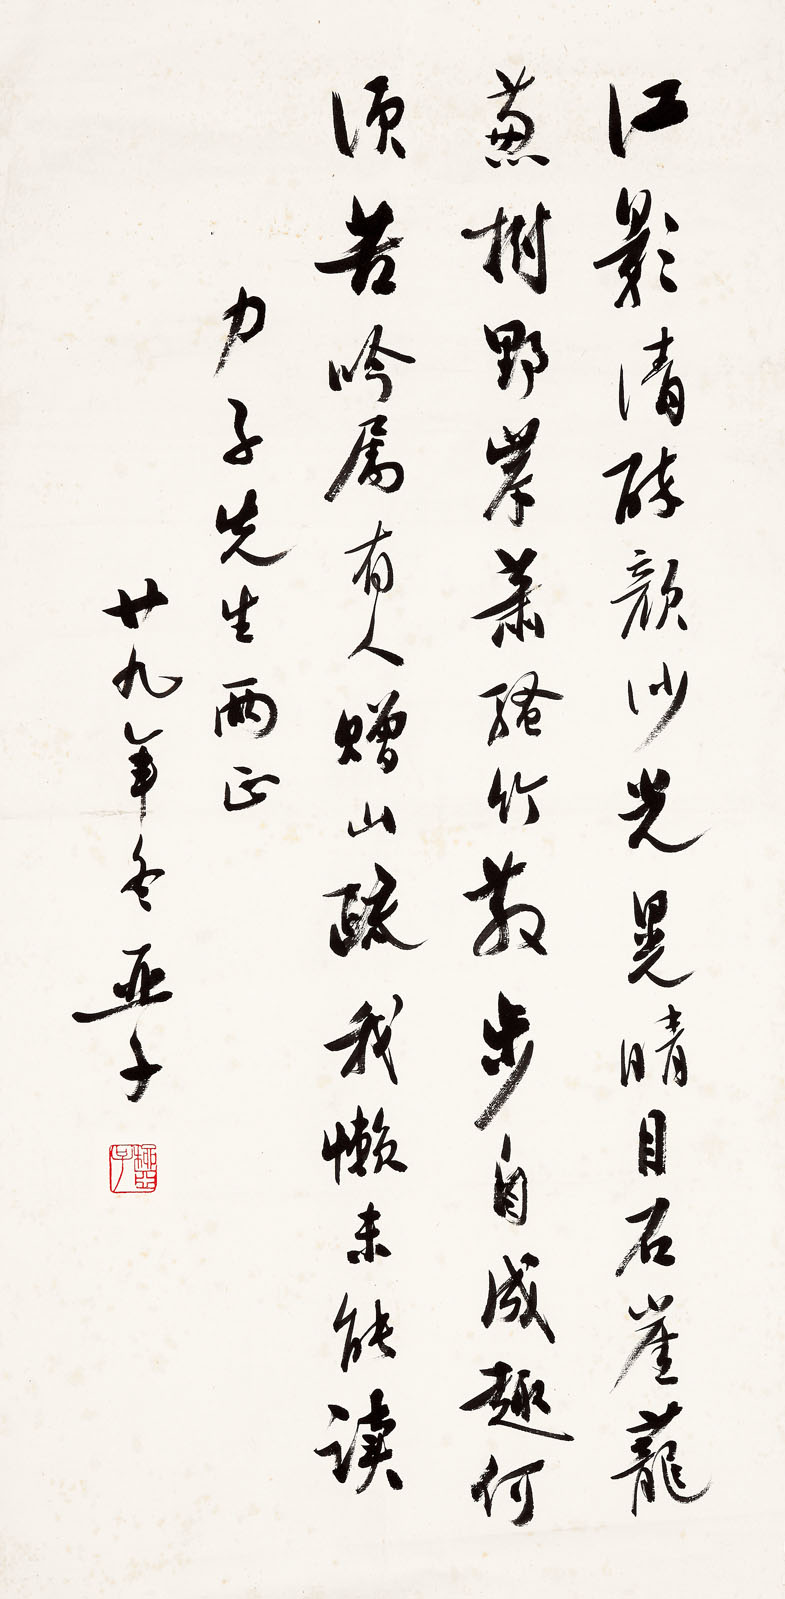 江影清醉顏沙光晃晴目石崖蘢
蔥樹野岸蕭騷竹散步自成趣何
須苦吟屬有人贈山疏我懶未能讀
力子先生兩正
廿九年冬亞子
柳亞子